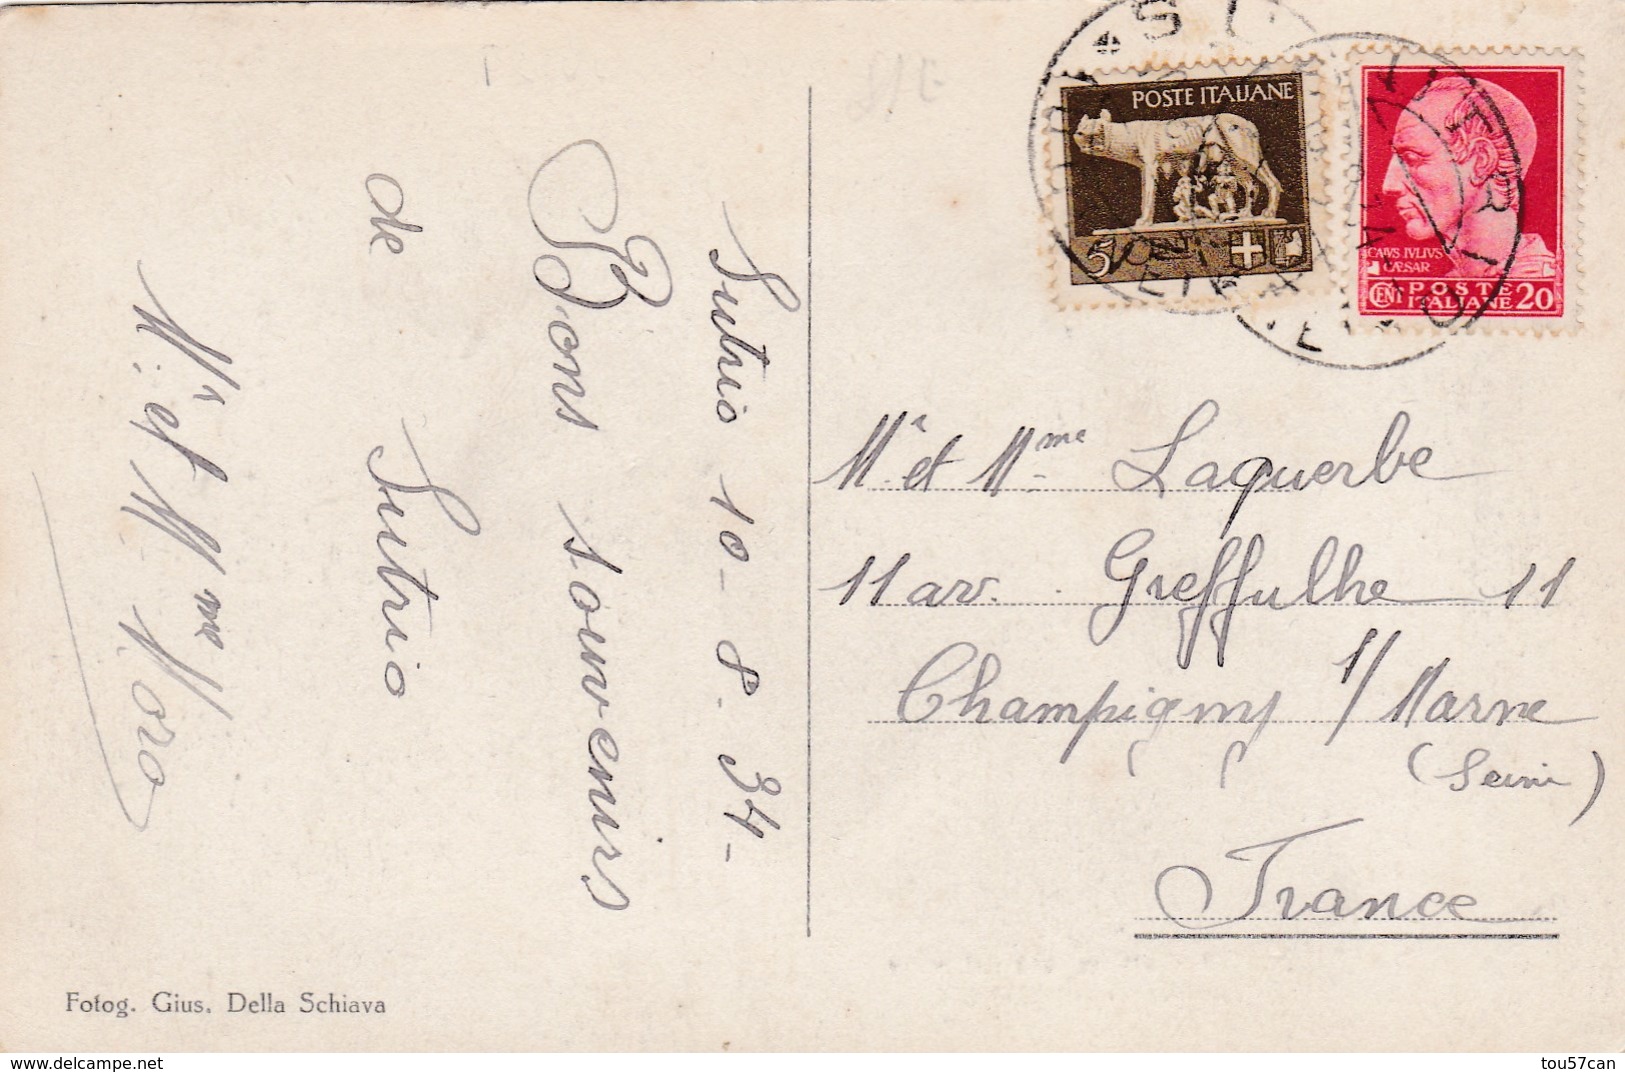 Sutrio 10-8.34-
Bons souvenirs
de Sutrio
Mr et Mme Moro
Fotog. Gius. Della Schiava
POSTE ITALIANE
5
CAIVS IVLIVS
CÆSAR
CENT POSTE ITALIANE 20
SUTRIO
Mr et Mme Laquerbe
11 av. Greffulhe 11
Champigny s/ Marne
(Seine)
France
tou57can